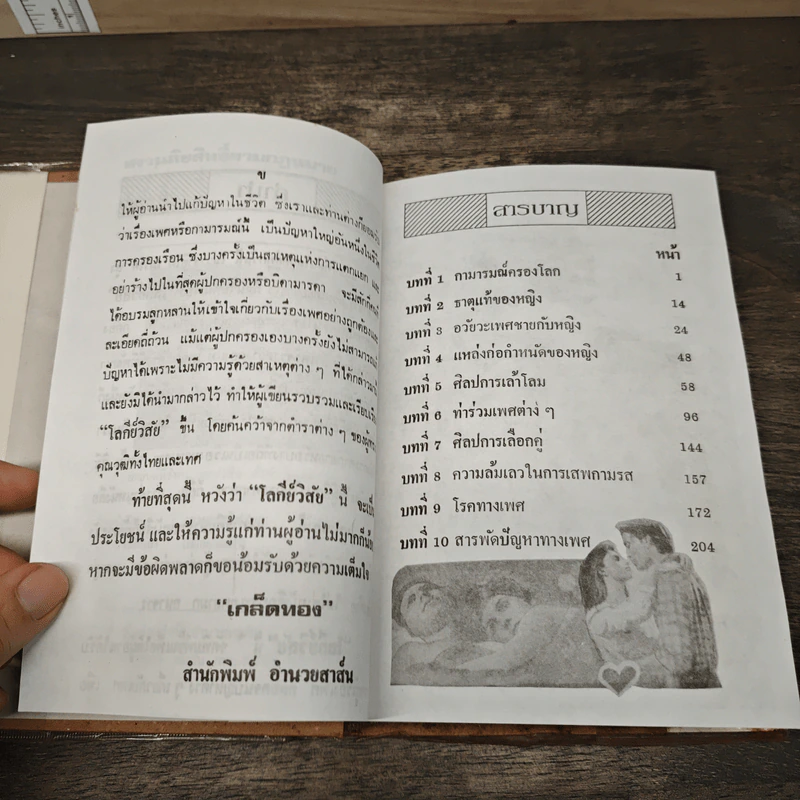 ข
ให้ผู้อ่านนำไปแก้ปัญหาในชีวิต ซึ่งเราและท่านต่างก็
ว่าเรื่องเพศหรือกามารมณ์นี้ เป็นปัญหาใหญ่อันหนึ่งในชีวิต
การครองเรือน ซึ่งบางครั้งเป็นสาเหตุแห่งการแตกแยก และ
อย่าร้างไปในที่สุดผู้ปกครองหรือบิดามารดา จะมีสักกี่คนที่
ได้อบรมลูกหลานให้เข้าใจเกี่ยวกับเรื่องเพศอย่างถูกต้องและ
ละเอียดถี่ถ้วน แม้แต่ผู้ปกครองเองบางครั้งยังไม่สามารถแก้
ปัญหาได้เพราะไม่มีความรู้ด้วยสาเหตุต่าง ๆ ที่ได้กล่าวมา
และยังมิได้นำมากล่าวไว้ ทำให้ผู้เขียนรวบรวมและเรียบเรียง
“โลกีย์วิสัย” ขึ้น โดยค้นคว้าจากตำราต่าง ๆ ของผู้ทรง
คุณวุฒิทั้งไทยและเทศ
ท้ายที่สุดนี้ หวังว่า “โลกีย์วิสัย” นี้ จะเป็น
ประโยชน์ และให้ความรู้แก่ท่านผู้อ่านไม่มากก็น้อย
หากจะมีข้อผิดพลาดก็ขอน้อมรับด้วยความเต็มใจ
“เกล็ดทอง”
สำนักพิมพ์ อำนวยสาส์น
สารบาญ
หน้า
บทที่ 1 กามารมณ์ครองโลก 1
บทที่ 2 ธาตุแท้ของหญิง 14
บทที่ 3 อวัยวะเพศชายกับหญิง 24
บทที่ 4 แหล่งก่อกำหนัดของหญิง 48
บทที่ 5 ศิลปการเล้าโลม 58
บทที่ 6 ท่าร่วมเพศต่าง ๆ 96
บทที่ 7 ศิลปการเลือกคู่ 144
บทที่ 8 ความล้มเลวในการเสพกามรส 157
บทที่ 9 โรคทางเพศ 172
บทที่ 10 สารพัดปัญหาทางเพศ 204